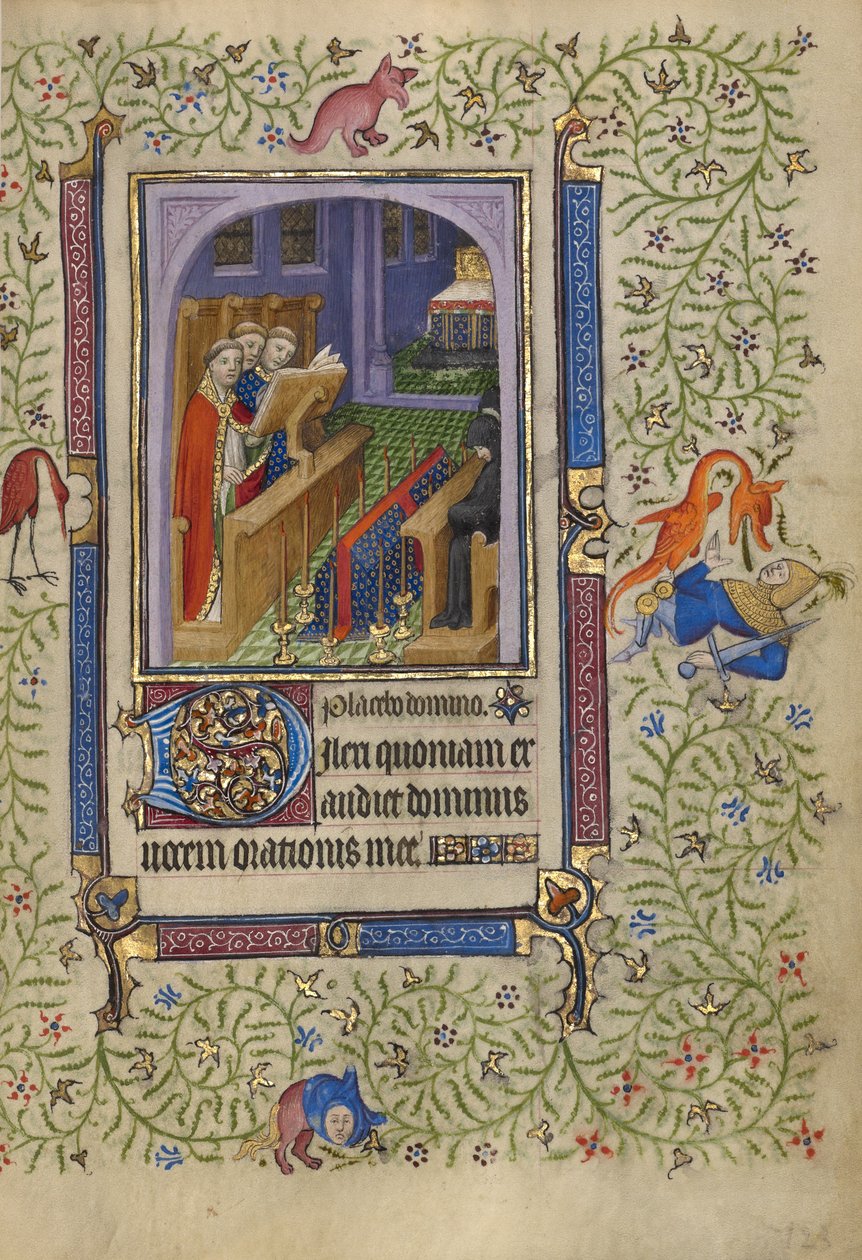 Placebo domino.
Dilexi quoniam ex
audiet dominus
uocem orationis mee.